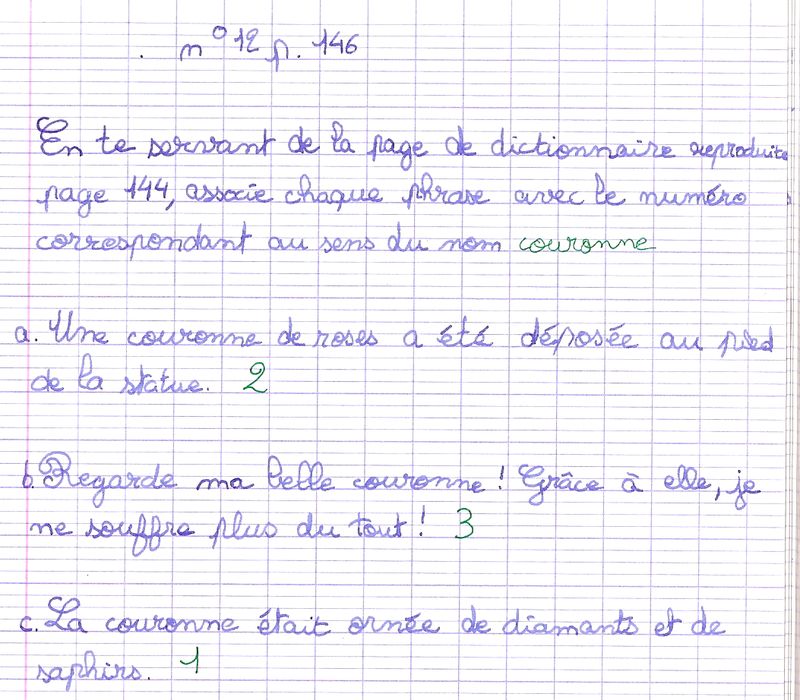 . n° 12 p. 146
En te servant de la page de dictionnaire reproduite
page 144, associe chaque phrase avec le numéro
correspondant au sens du nom couronne
a. Une couronne de roses a été déposée au pied
de la statue. 2
b. Regarde ma belle couronne ! Grâce à elle, je
ne souffre plus du tout ! 3
c. La couronne était ornée de diamants et de
saphirs. 1